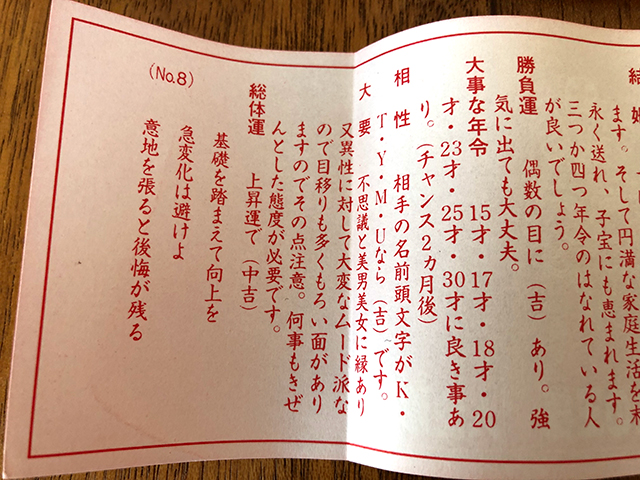 す。そして円満な家庭生活を
永く送れ、子宝にも恵まれます。
三つか四つ年令のはなれている人
が良いでしょう。
勝負運 偶数の目に（吉）あり。強
気に出ても大丈夫。
大事な年令 15才・17才・18才・20
才・23才・25才・30才に良き事あ
り。（チャンス2カ月後）
相性 相手の名前頭文字がK・
T・Y・M・Uなら（吉）です。
大要 不思議と美男美女に縁あり
又異性に対して大変なムード派な
ので目移りも多くもろい面があり
ますのでその点注意。何事もきぜ
んとした態度が必要です。
総体運 上昇運で（中吉）
基礎を踏まえて向上を
急変化は避けよ
意地を張ると後悔が残る
（No.8）